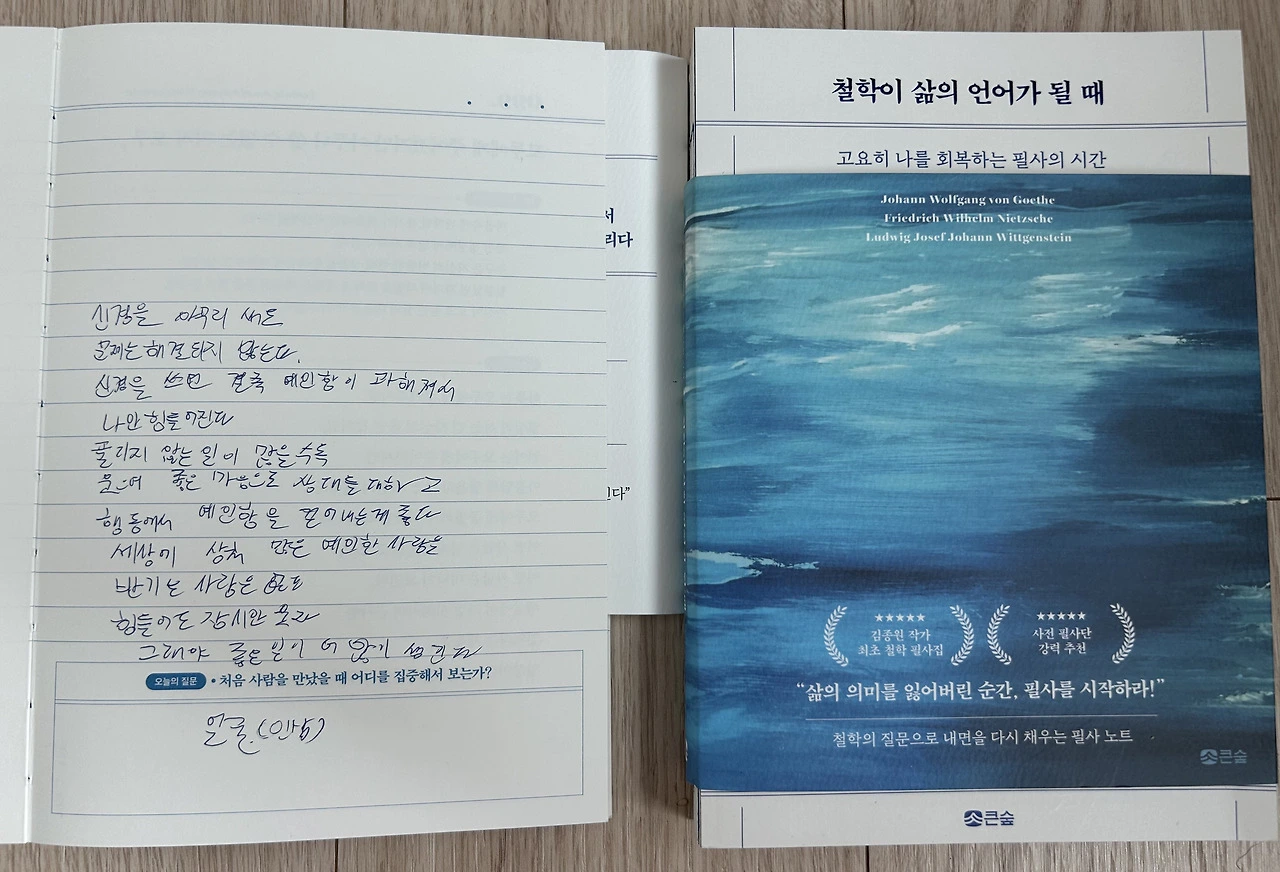 신경을 아무리 써도
문제는 해결되지 않는다.
신경을 쓰면 결국 예민함이 과해져서
나만 힘들어진다
풀리지 않는 일이 많을수록
웃으며 좋은 마음으로 상대를 대하고
행동에서 예민함을 덜어내는게 좋다
세상에 상처 많은 예민한 사람을
반기는 사람은 없다
힘들어도 잠시만 웃자
그래야 좋은 일이 더 많이 생긴다
오늘의 질문 • 처음 사람을 만났을 때 어디를 집중해서 보는가?
얼굴.(인상)
서
리다
다”
철학이 삶의 언어가 될 때
고요히 나를 회복하는 필사의 시간
Johann Wolfgang von Goethe
Friedrich Wilhelm Nietzsche
Ludwig Josef Johann Wittgenstein
★★★★★
김종원 작가
최초 철학 필사집
★★★★★
사전 필사단
강력 추천
“삶의 의미를 잃어버린 순간, 필사를 시작하라!”
철학의 질문으로 내면을 다시 채우는 필사 노트
큰숲
큰숲